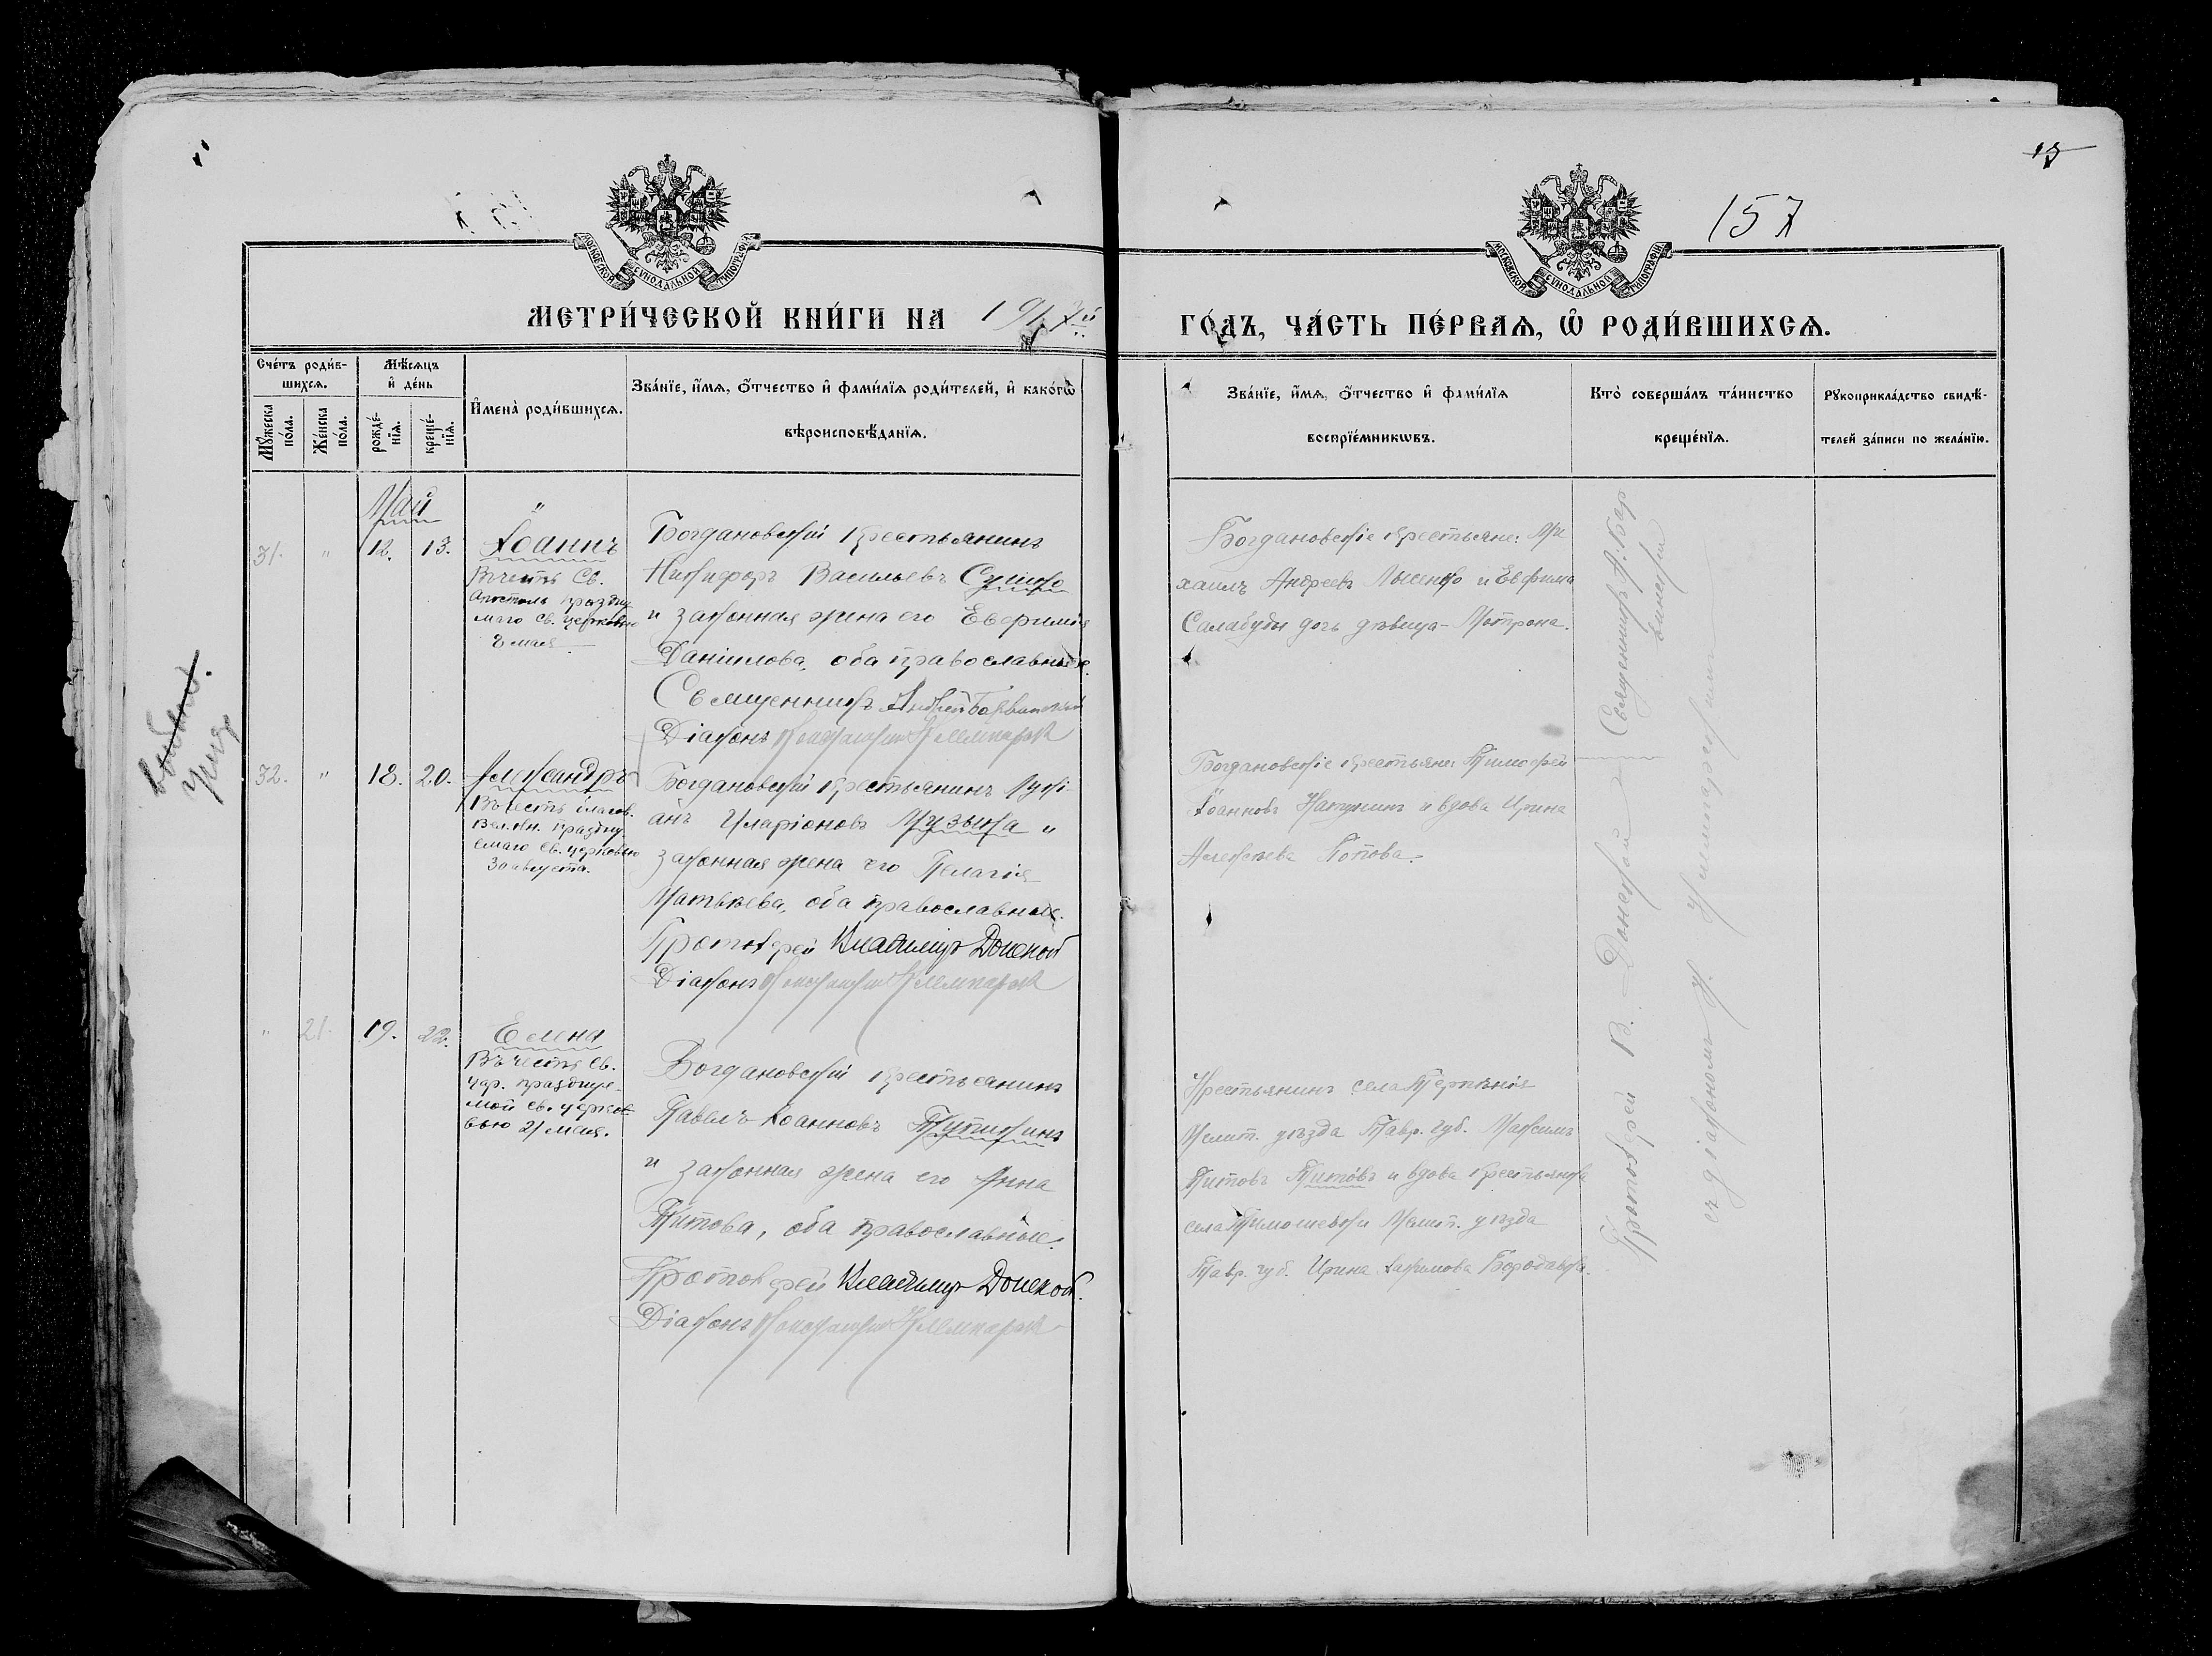 157
МОСКОВСКОЙ СѴНОДАЛЬНОЙ ТИПОГРАФІИ
МОСКОВСКОЙ СѴНОДАЛЬНОЙ ТИПОГРАФІИ
МЕТРИ́ЧЕСКОЙ КНИ́ГИ НА 1917й
ГО́ДЪ, ЧА́СТЬ ПЕ́РВАѦ, Ѽ РОДИ́ВШИХСѦ.
Сче́тъ роди́в-
шихсѧ.
Мꙋ́жеска
по́ла.
Же́нска
по́ла.
Мѣ́сѧцъ
и҆ де́нь
рожде́-
нїѧ.
креще́-
нїѧ.
И҆мена̀ роди́вшихсѧ.
Зва́нїе, и҆́мѧ, ѻ҆́тчество и҆ фами́лїѧ роди́телей, и҆ како́гѡ
вѣроисповѣ́данїѧ.
Зва́нїе, и҆́мѧ, ѻ҆́тчество и҆ фами́лїѧ
воспрїе́мникѡвъ.
Кто̀ соверша́лъ та́инство
креще́нїѧ.
Рꙋкоприкла́дство свидѣ́-
телей за́писи по жела́нїю.
Май
31. " 12. 13. Іоаннъ
Въ честь Св.
Апостола праздну-
маго Св. Церковью
8 мая
Богдановскій крестьянинъ
Никифоръ Васильевъ Сушко
и законная жена его Евфимія
Даніилова, оба православные.
Священникъ Андрей Барвинскій
Діаконъ
Богдановскіе крестьяне: Ми
хаилъ Андреевъ Лысенко и Евфима
Салабуды дочь дѣвица - Мотрона.
Священникъ А. Бар
винскій
32. " 18. 20. Александръ
Въ честь благов.
Вел. Кн. празdну
емаго Св. Церковью
30 августа.
Богдановскій крестьянинъ Лукі-
анъ Иларіоновъ Музыка и
законная жена его Пелагія
Матѳѣева, оба православные.
Протоіерей Владиміръ Донской
Діаконъ
Богдановскіе крестьяне: Тимофей
Іоанновъ Напунинъ и вдова Ирина
Алексѣева Попова.
" 21. 19. 22. Елена
Въ честь Св.
Цар. празднуе-
мой Св. Церко-
вью 21 мая.
Богдановскій крестьянинъ
Павелъ Іоанновъ Тупикинъ
и законная жена его Анна
Титова, оба православные.
Протоіерей Владиміръ Донской.
Діаконъ
Крестьянинъ села Терпѣнія
Мелит. уѣзда Тавр. губ. Максимъ
Титовъ Титовъ и вдова крестьянка
села Тимошевки Мелит. уѣзда
Тавр. губ. Ирина Бородавка.
Протоіерей В. Донской
съ діакономъ